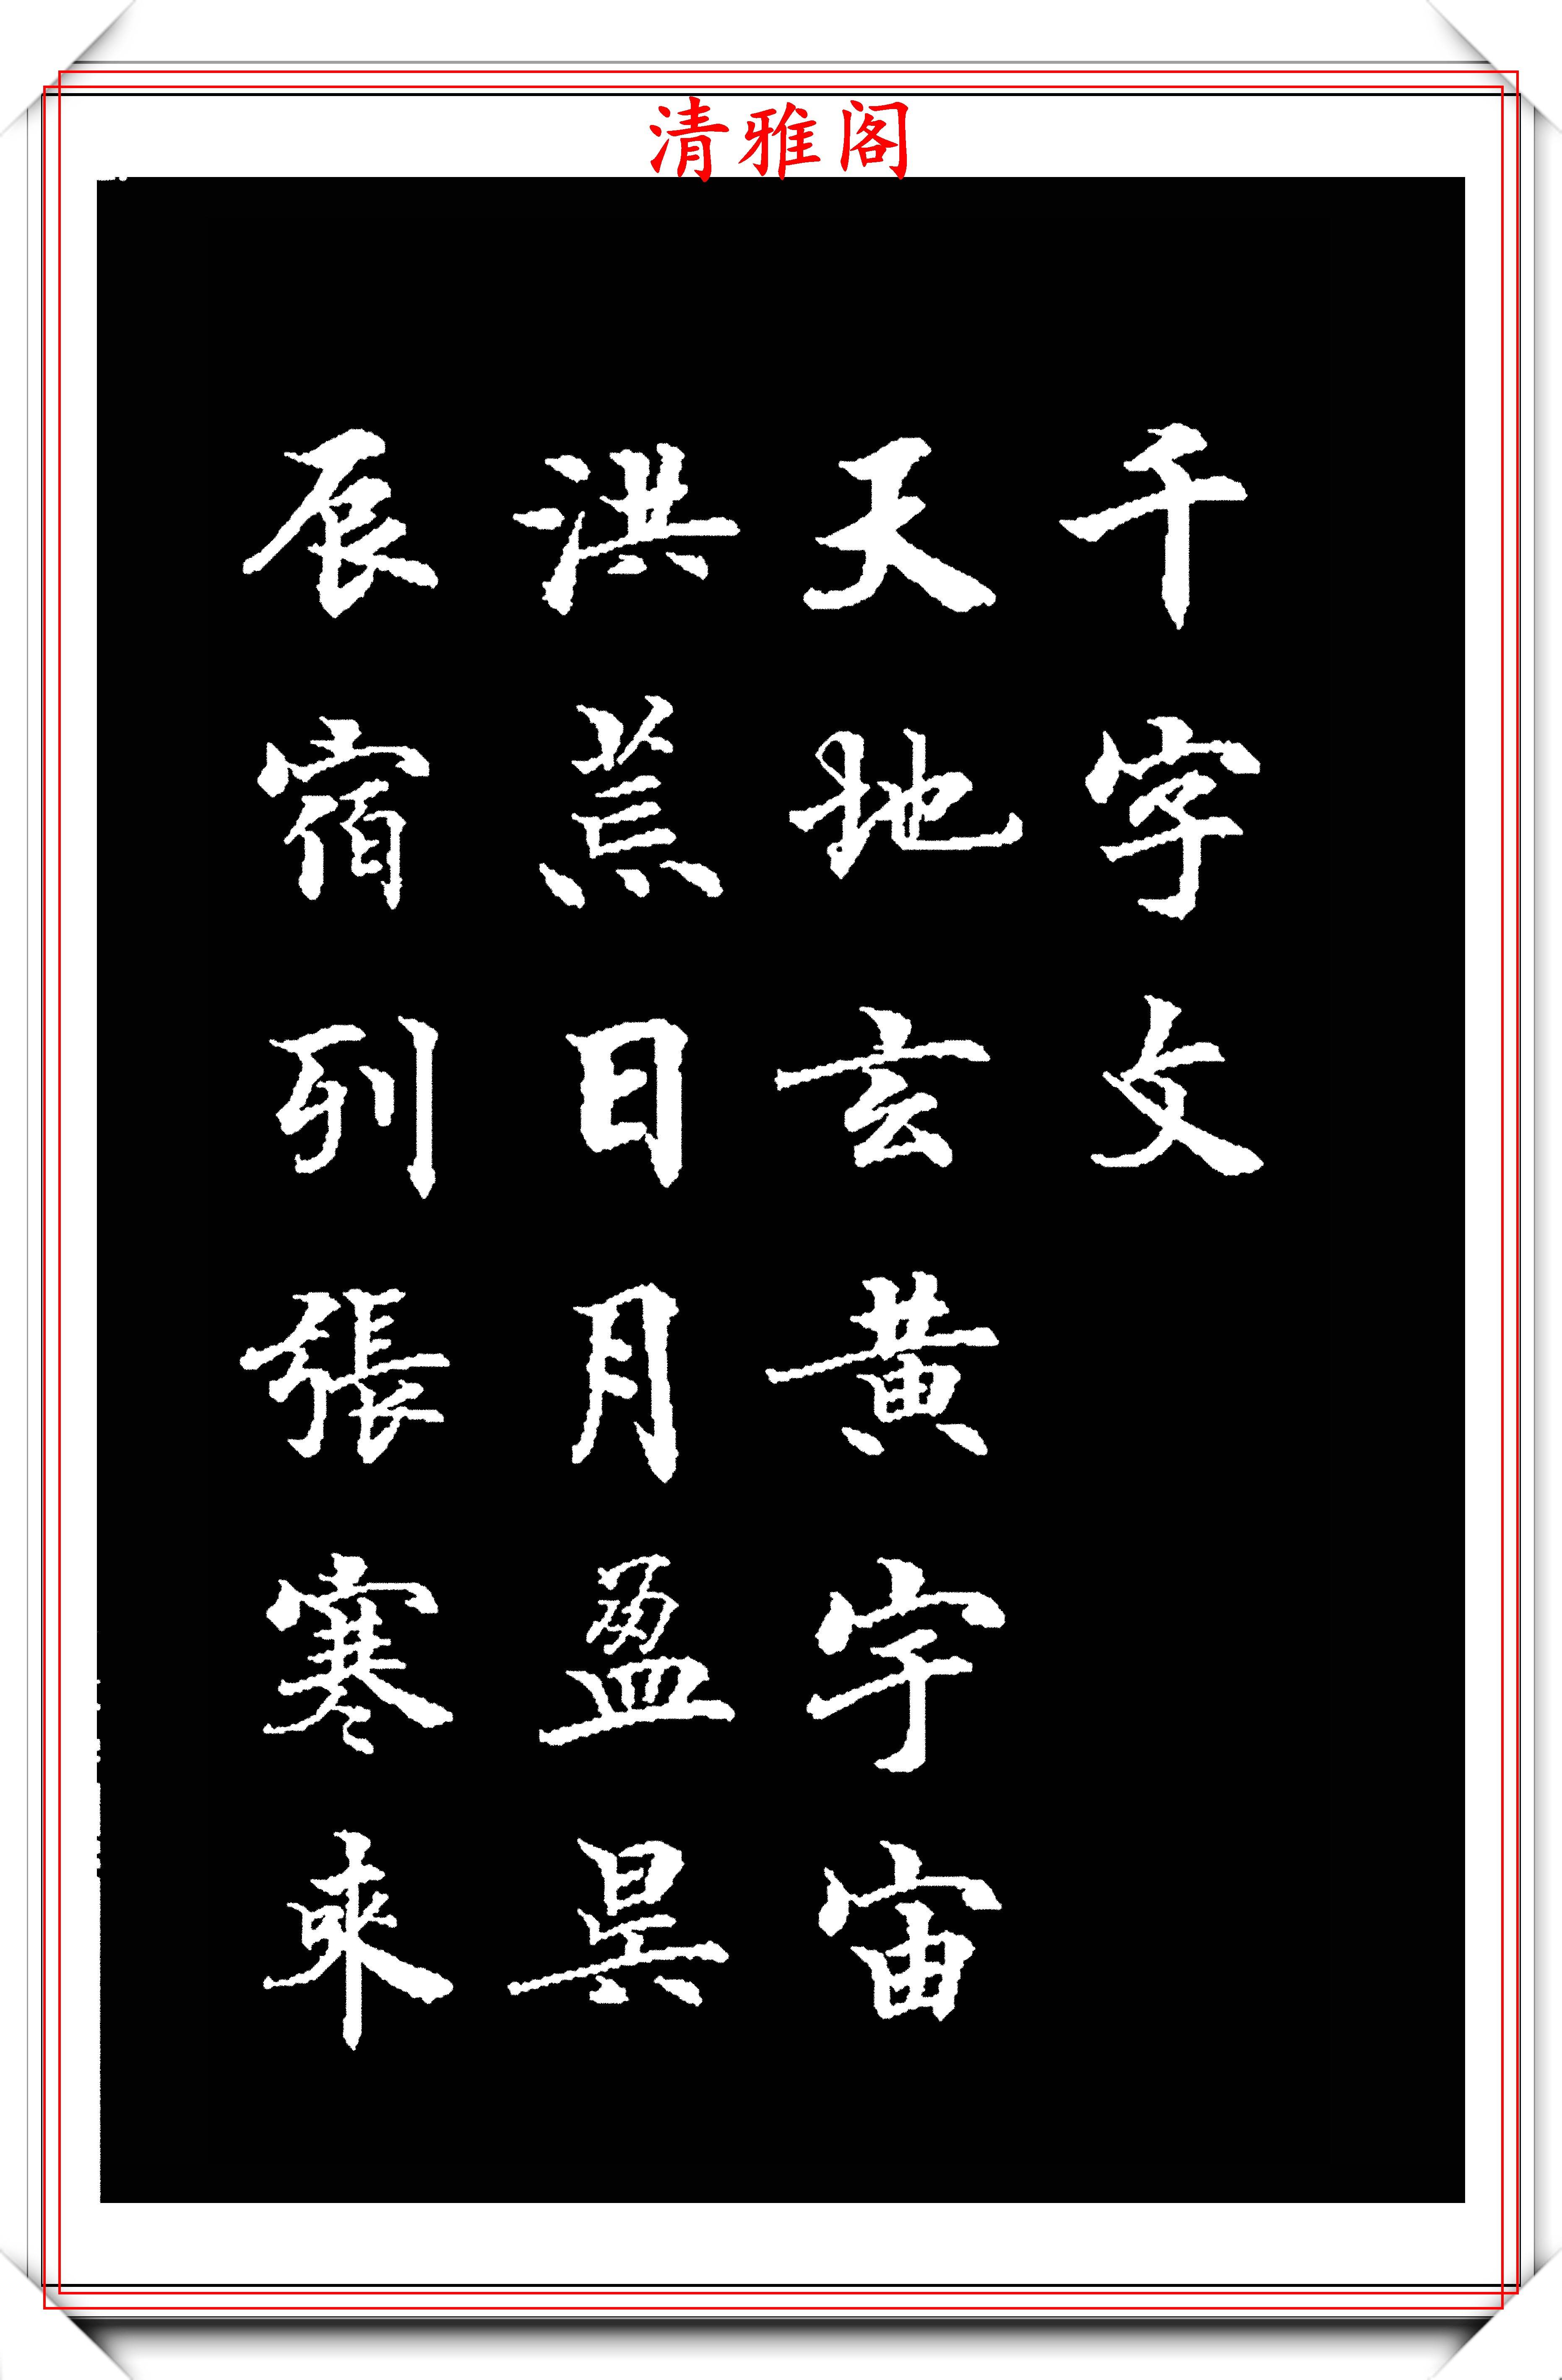 清雅阁
千字文
天地玄黄宇宙
洪荒日月盈昃
辰宿列張寒来